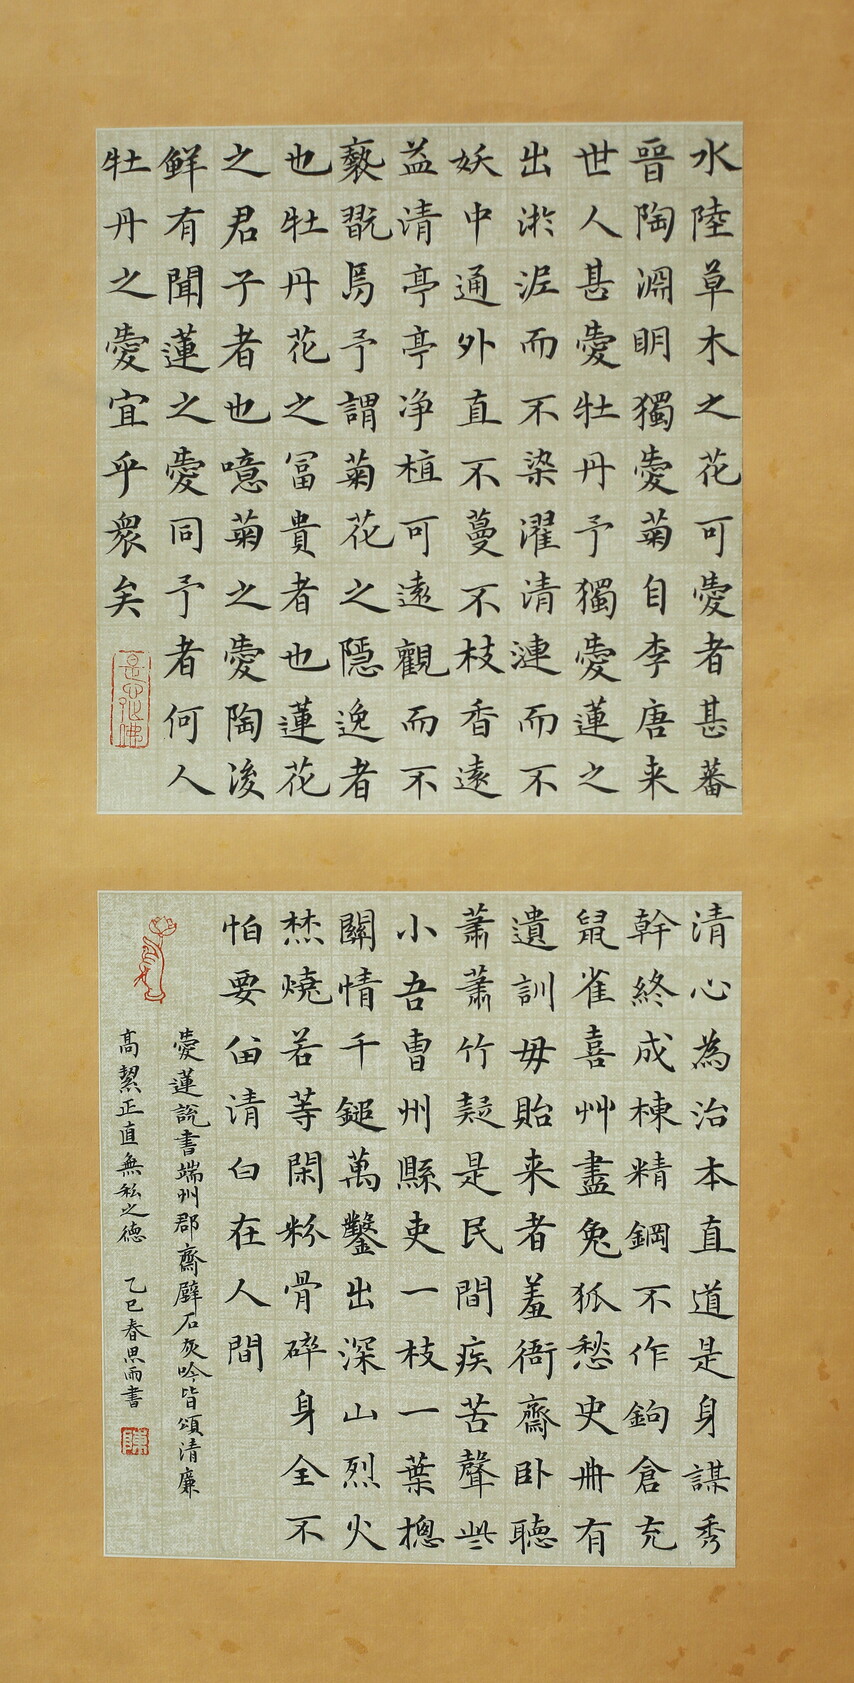 水陸草木之花可愛者甚蕃
晉陶淵明獨愛菊自李唐来
世人甚愛牡丹予獨愛蓮之
出淤泥而不染濯清漣而不
妖中通外直不蔓不枝香遠
益清亭亭净植可遠觀而不
褻翫焉予謂菊花之隱逸者
也牡丹花之冨貴者也蓮花
之君子者也噫菊之愛陶後
鮮有聞蓮之愛同予者何人
牡丹之愛宜乎衆矣
清心為治本直道是身謀秀
幹終成棟精鋼不作鉤倉充
鼠雀喜艸盡兔狐愁史冊有
遺訓毋貽来者羞衙齋卧聽
蕭蕭竹疑是民間疾苦聲些
小吾曹州縣吏一枝一葉摠
關情千鎚萬鑿出深山烈火
焚燒若等閑粉骨碎身全不
怕要留清白在人間
愛蓮説書端州郡齋壁石灰吟皆頌清廉
高絜正直無私之德 乙巳春思雨書